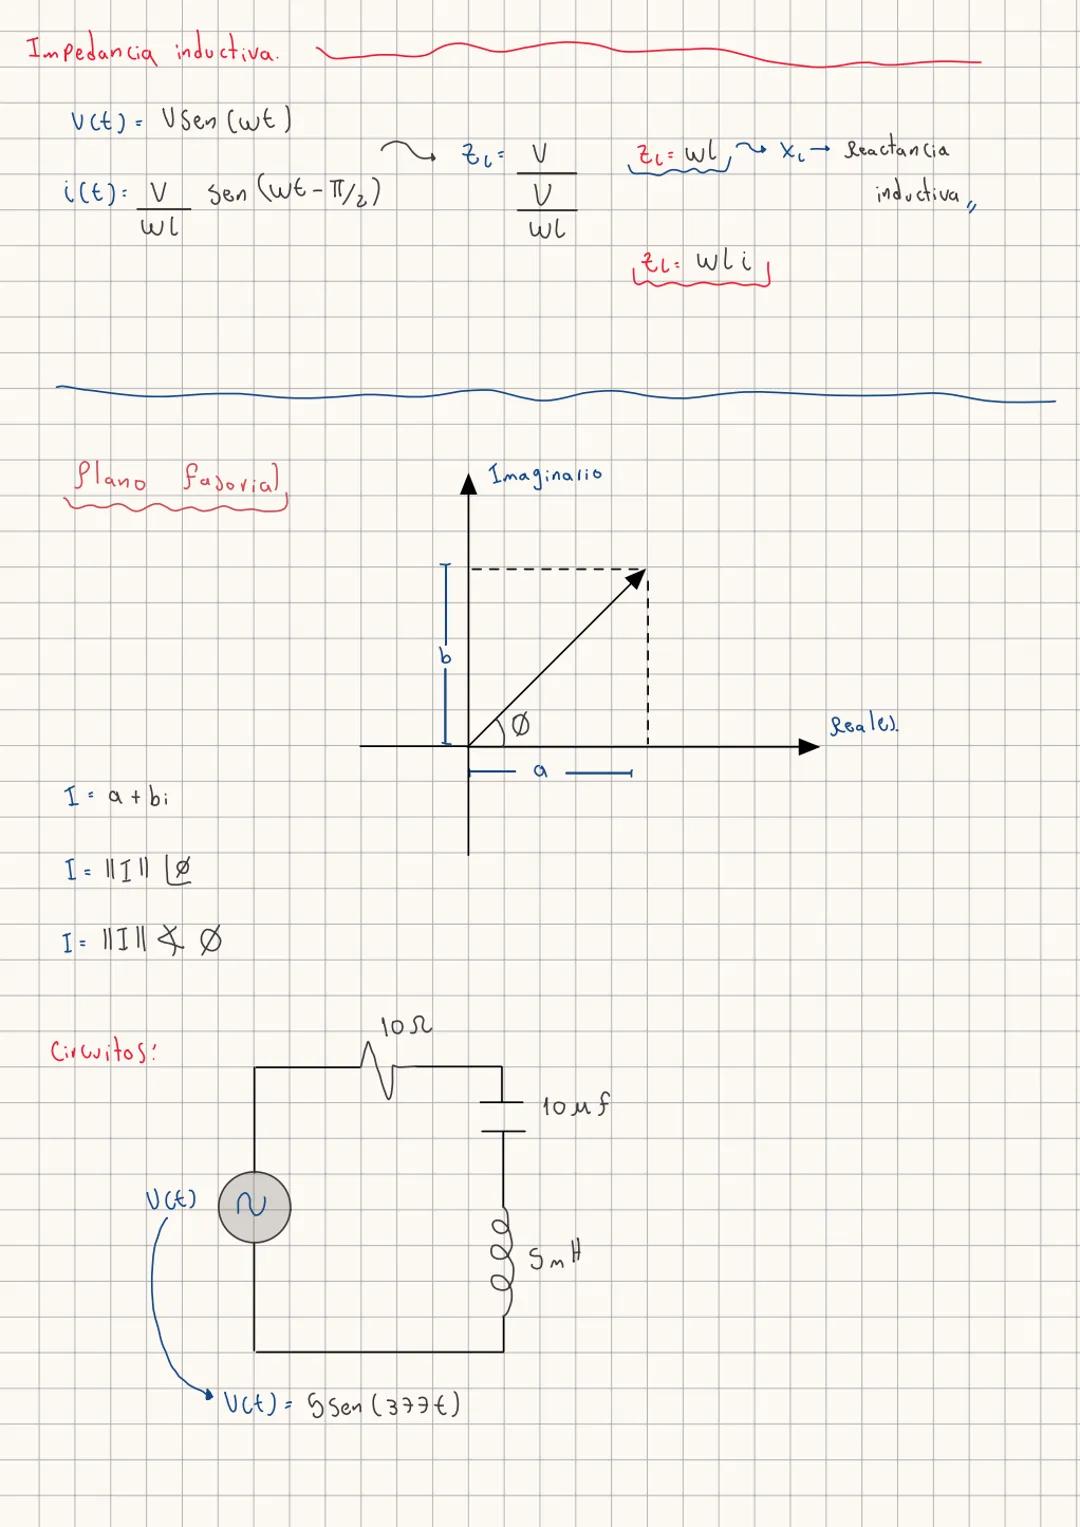 Impedancia inductiva.
V(t) = V Sen (wt)
i(t) = V/wL Sen (wt - π/2)
ZL = V / (V/wL)
ZL = wL → XL → Reactancia
inductiva
ZL = wLi
Plano fasorial
Imaginario
b
Ø
Reales.
a
I = a + bi
I = ||I|| ∠Ø
I = ||I|| ∢ Ø
10Ω
Circuitos:
10 μf
V(t)
5 mH
V(t) = 5 Sen (377t)